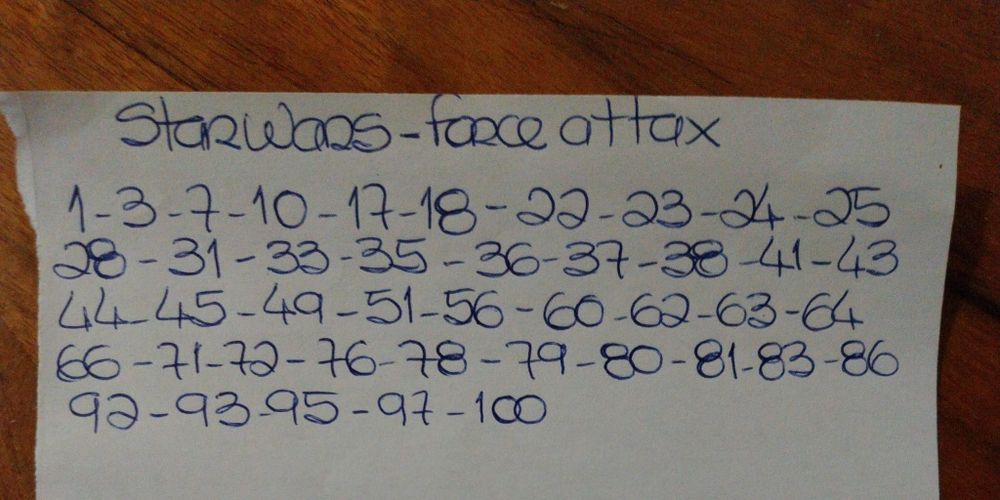 Starwars-force attax
1-3-7-10-17-18-22-23-24-25
28-31-33-35-36-37-38-41-43
44-45-49-51-56-60-62-63-64
66-71-72-76-78-79-80-81-83-86
92-93-95-97-100